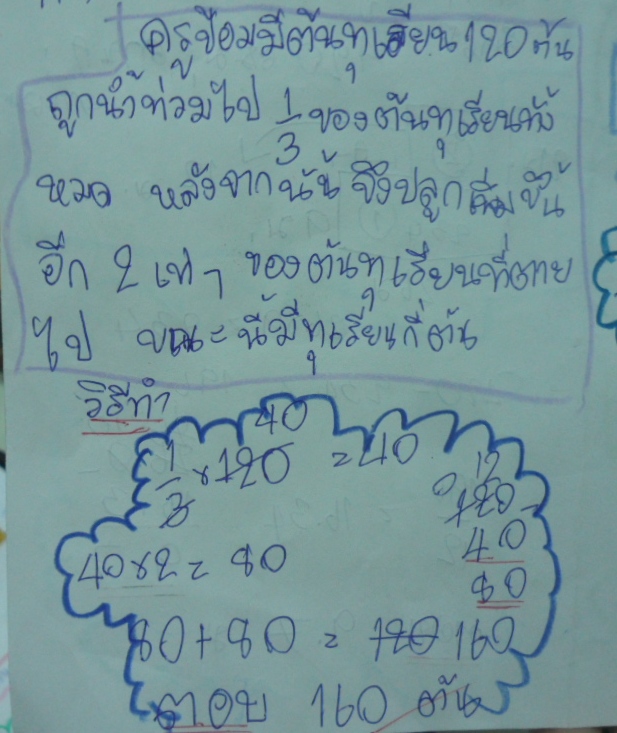 ครูป้อมมีต้นทุเรียน 120 ต้น
ถูกน้ำท่วมไป 1/3 ของต้นทุเรียนทั้ง
หมด หลังจากนั้น จึงปลูกเพิ่มขึ้น
อีก 2 เท่า ของต้นทุเรียนที่ตาย
ไป ขณะนี้มีทุเรียนกี่ต้น
วิธีทำ
40
1/3 × 120 = 40
12
120 -
40
80
40×2 = 80
80+80 = 120 160
ตอบ 160 ต้น